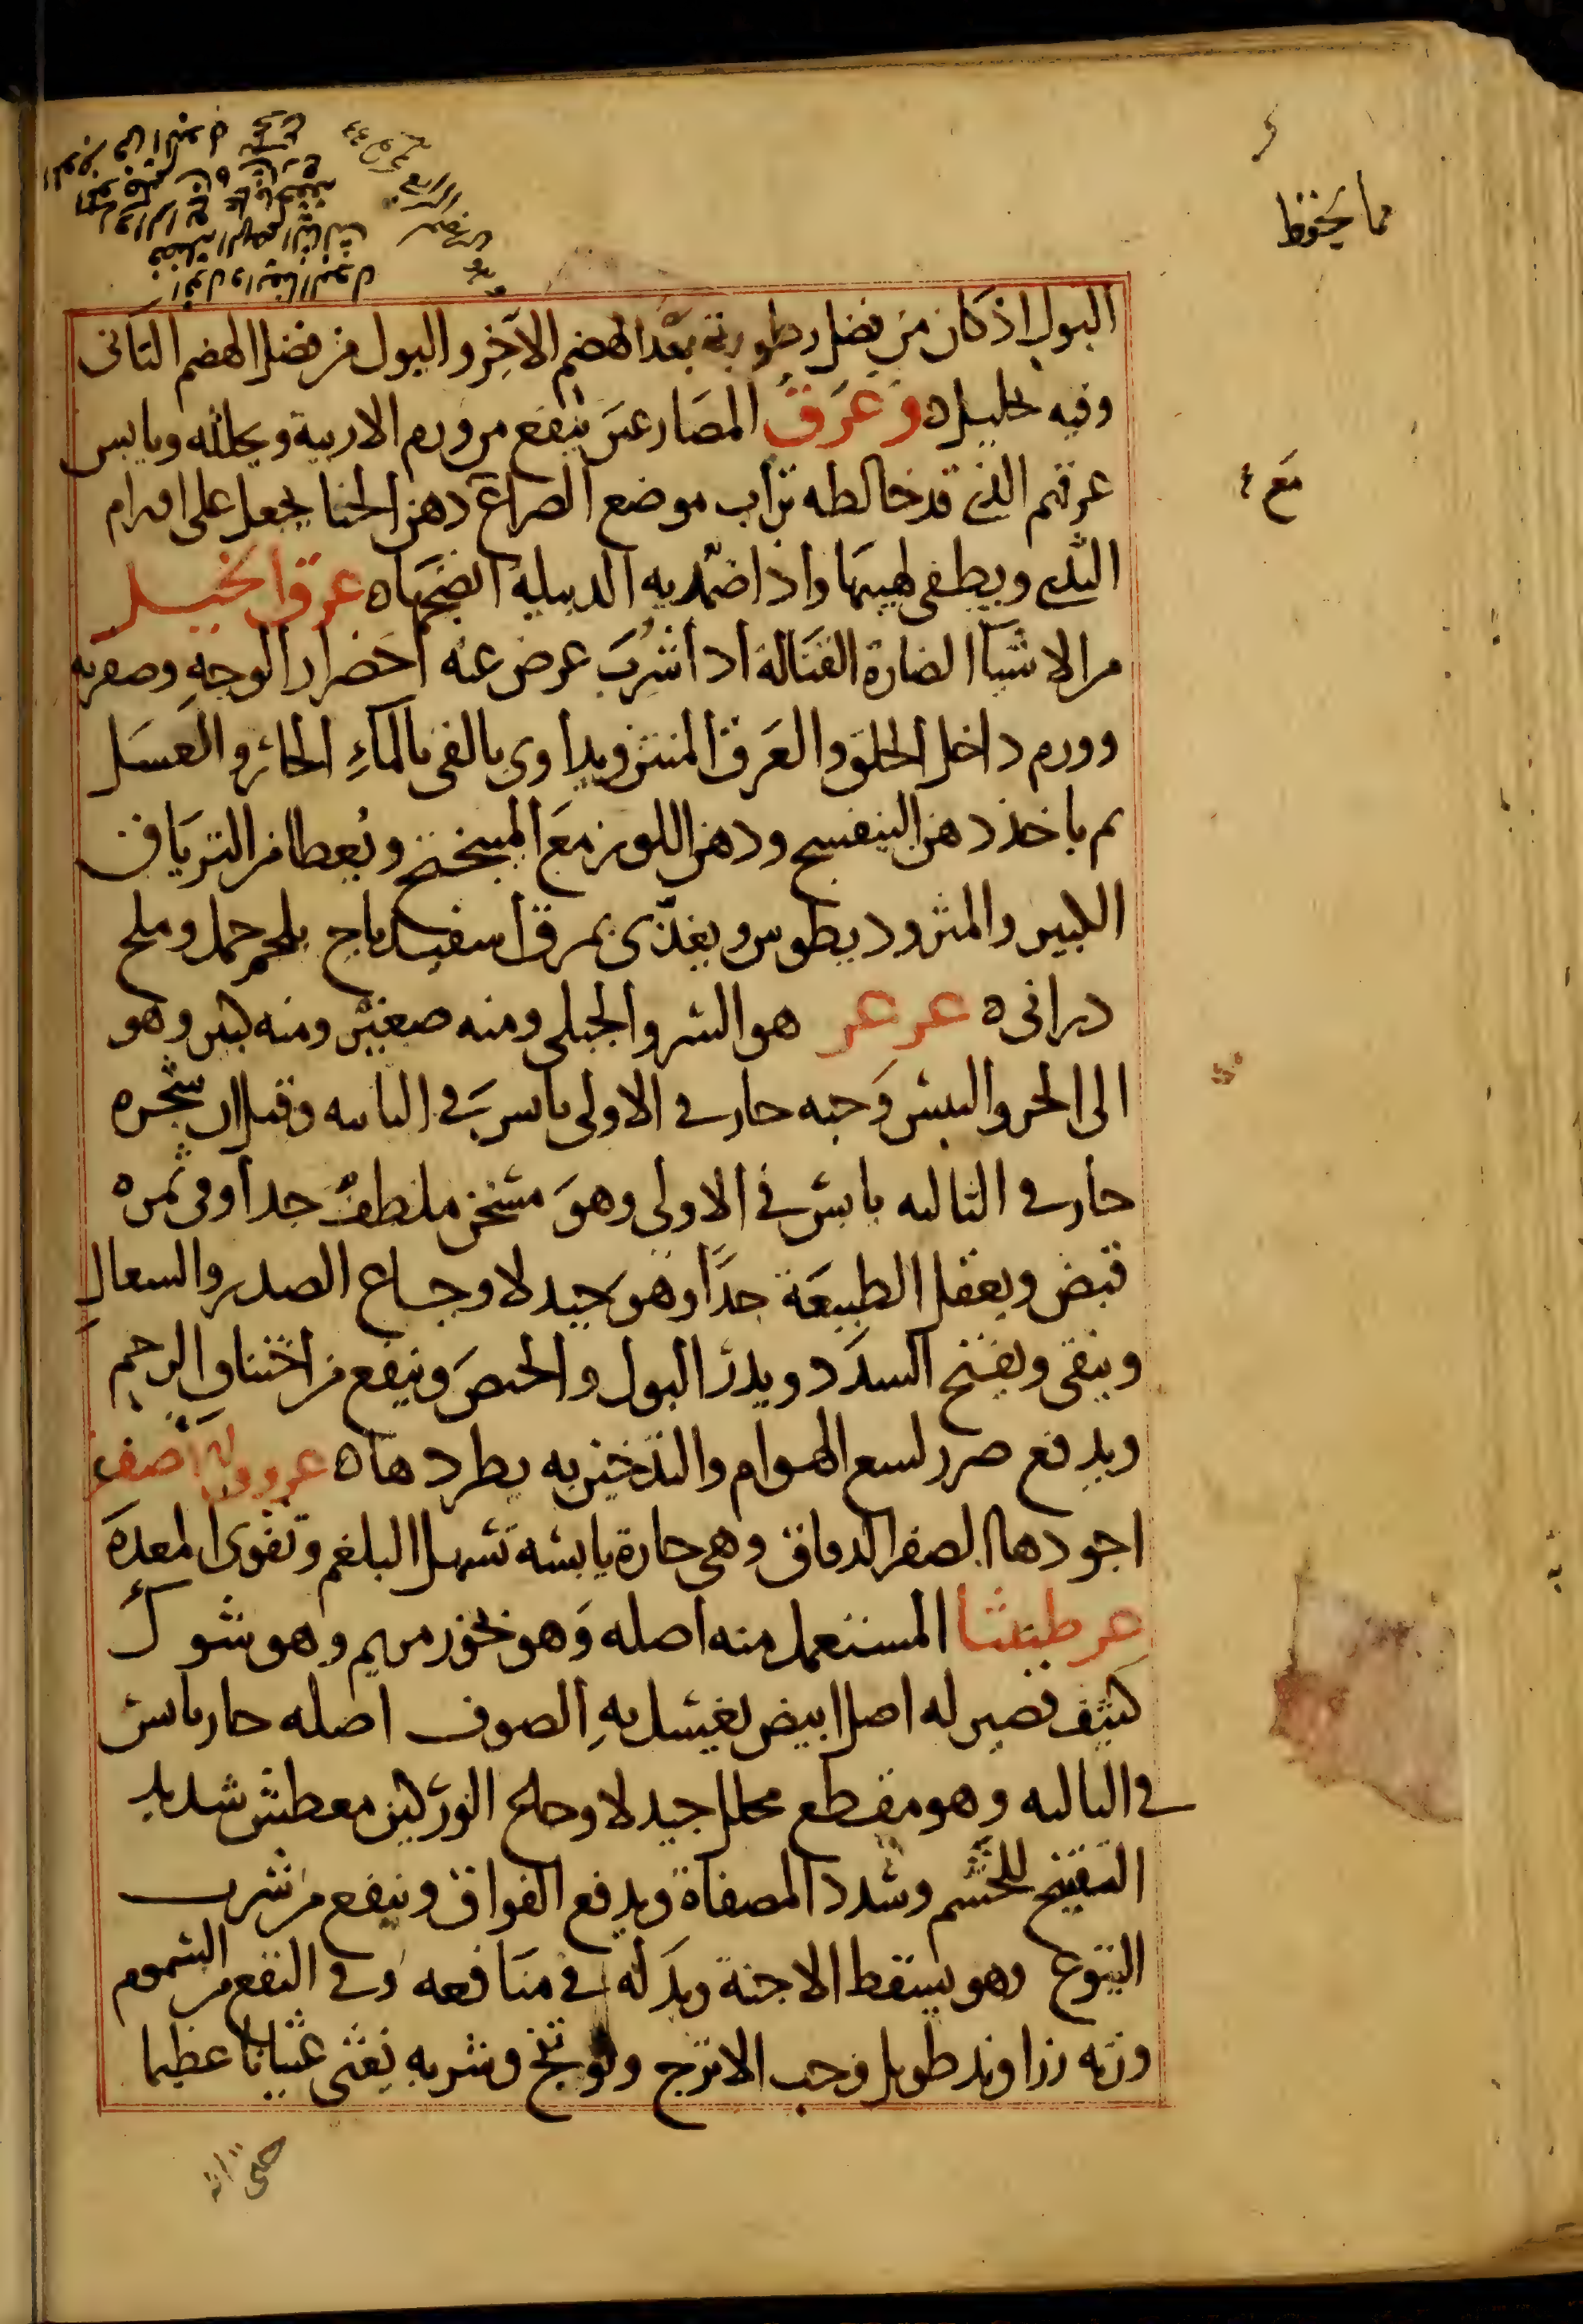 مما يحفظ
البول اذ كان من فضل رطوبة بعد الهضم الآخر والبول من فضل الهضم الثانى
وفيه تحليل ه وعرق المصارعين ينفع من ورم الاربية ويحلله ويابس
عرقهم الذى قد خالطه تراب موضع الصراع دهن الحنا يجعل على اورام
الثدى ويطفى لهيبها واذا ضمد به الدبيلة انضجها ه عرق الخيل
من الاشيآ الضارة القتالة اذا شرب عرض عنه اخضرار الوجه وصفرته
وورم داخل الحلق والعرق المنتن ويداوى بالقى بالمآء الحار والعسل
ثم ياخذ دهن البنفسج ودهن اللوز مع الميبختج ويعطا من الترياق
الكبير والمثروديطوس ويغذى بمرق اسفيدباج بلحم حمل وملح
درانى ه عرعر هو السرو الجبلى ومنه صغير ومنه كبير وهو
الى الحر واليبس وحبه حار فى الاولى يابس فى الثانيه وقيل ان شجره
حار فى الثالثه يابس فى الاولى وهو مسخن ملطف جدا وفى ثمره
قبض ويعقل الطبيعة جدا وهو جيد لاوجاع الصدر والسعال
وينقى ويفتح السدد ويدر البول والحيض وينفع من اختناق الرحم
ويدفع ضرر لسع الهوام والتدخين به يطردها ه عروق صفر
اجودها الصفر الدقاق وهى حارة يابسة تسهل البلغم وتقوى المعدة
عرطنيثا المستعمل منه اصله وهو بخور مريم وهو شوك
كثيف قصير له اصل ابيض يغسل به الصوف اصله حار يابس
فى الثالثه وهو مقطع محلل جيد لاوجاع الوركين معطش شديد
التفتيح للخشم وسدد المصفاة ويدفع الفواق وينفع من شرب
اليتوع وهو يسقط الاجنة وبدله فى منافعه وفى النفع من السموم
وزنه زراوند طويل وحب الاترج وفوتنج وشربه يغثى غثيانا عظيما
حتى انه